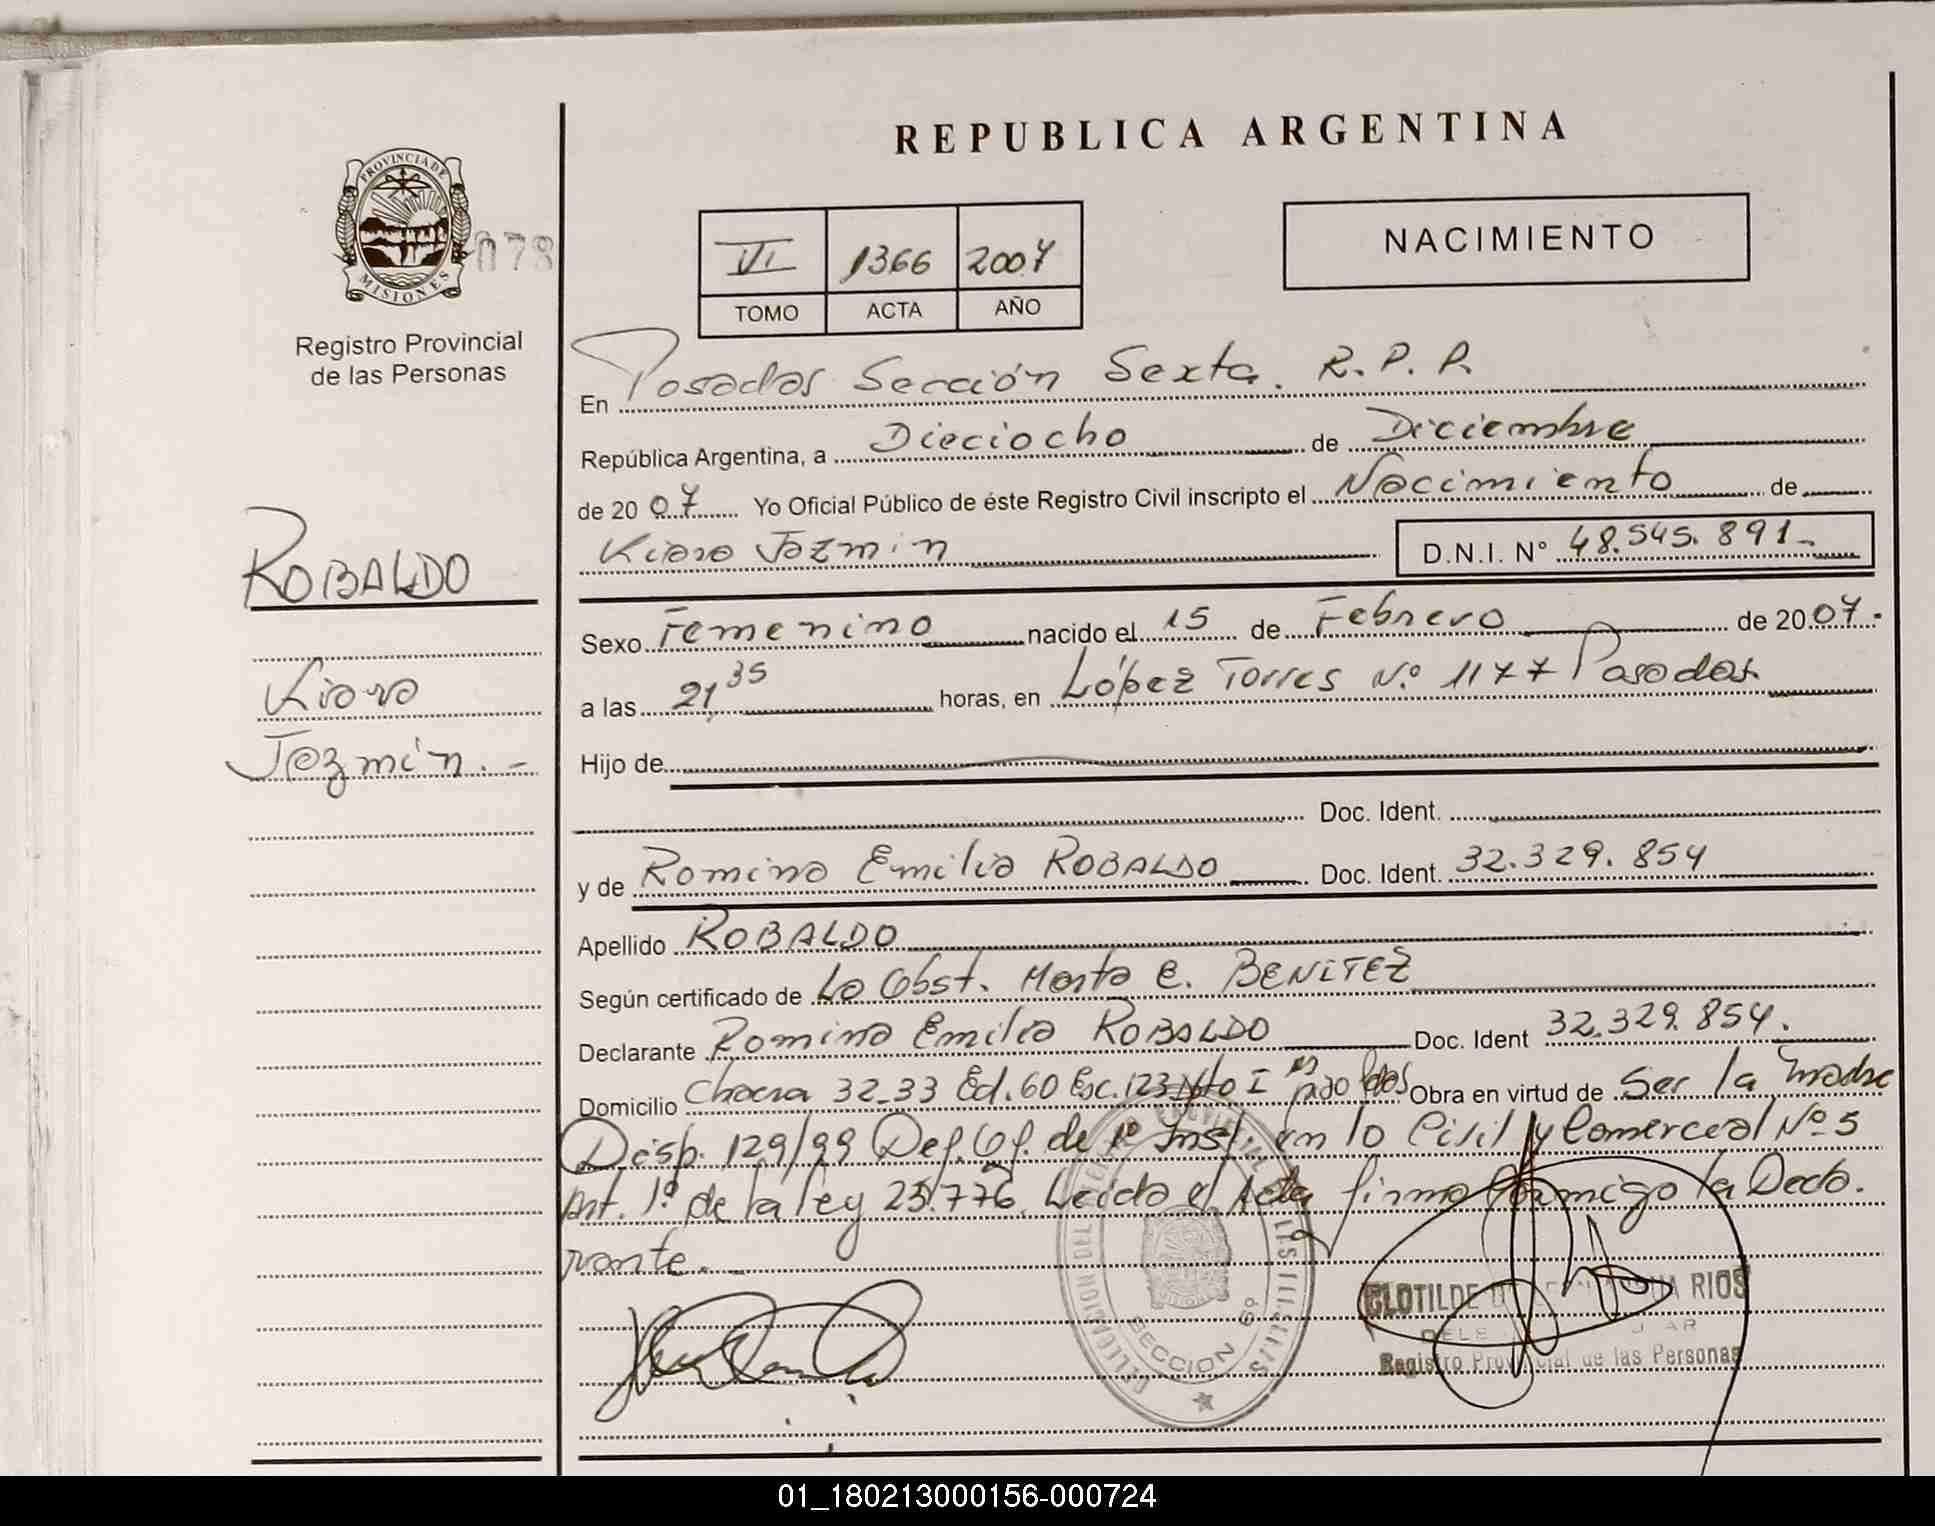 REPUBLICA ARGENTINA
PROVINCIA DE
MISIONES
078
Registro Provincial
de las Personas
VI 1366 2007
TOMO ACTA AÑO
NACIMIENTO
En Posadas Sección Sexta. R.P.P.
República Argentina, a Dieciocho de Diciembre
de 2007 Yo Oficial Público de éste Registro Civil inscripto el Nacimiento de
Kiara Jazmin D.N.I. N° 48.545.891.-
ROBALDO
Kiara
Jazmín.-
Sexo Femenino nacido el 15 de Febrero de 2007.
a las 21,35 horas, en López Torres N.º 1177 Posadas.
Hijo de
Doc. Ident.
y de Romina Emilia ROBALDO Doc. Ident. 32.329.854
Apellido ROBALDO
Según certificado de La Obst. Marta E. BENITEZ
Declarante Romina Emilia ROBALDO Doc. Ident 32.329.854.
Domicilio Chacra 32-33 Ed. 60 Esc. 123 Obra en virtud de Ser la madre
Disp. 129/99 Def. Of. de 1º Inst. en lo Civil y Comercial Nº 5
Art. 1º de la ley 25.776. Leída el Acta firma conmigo la Decla.
rante.-
SECCION 6º
CLOTILDE RIOS
Registro Provincial de las Personas
01_180213000156-000724